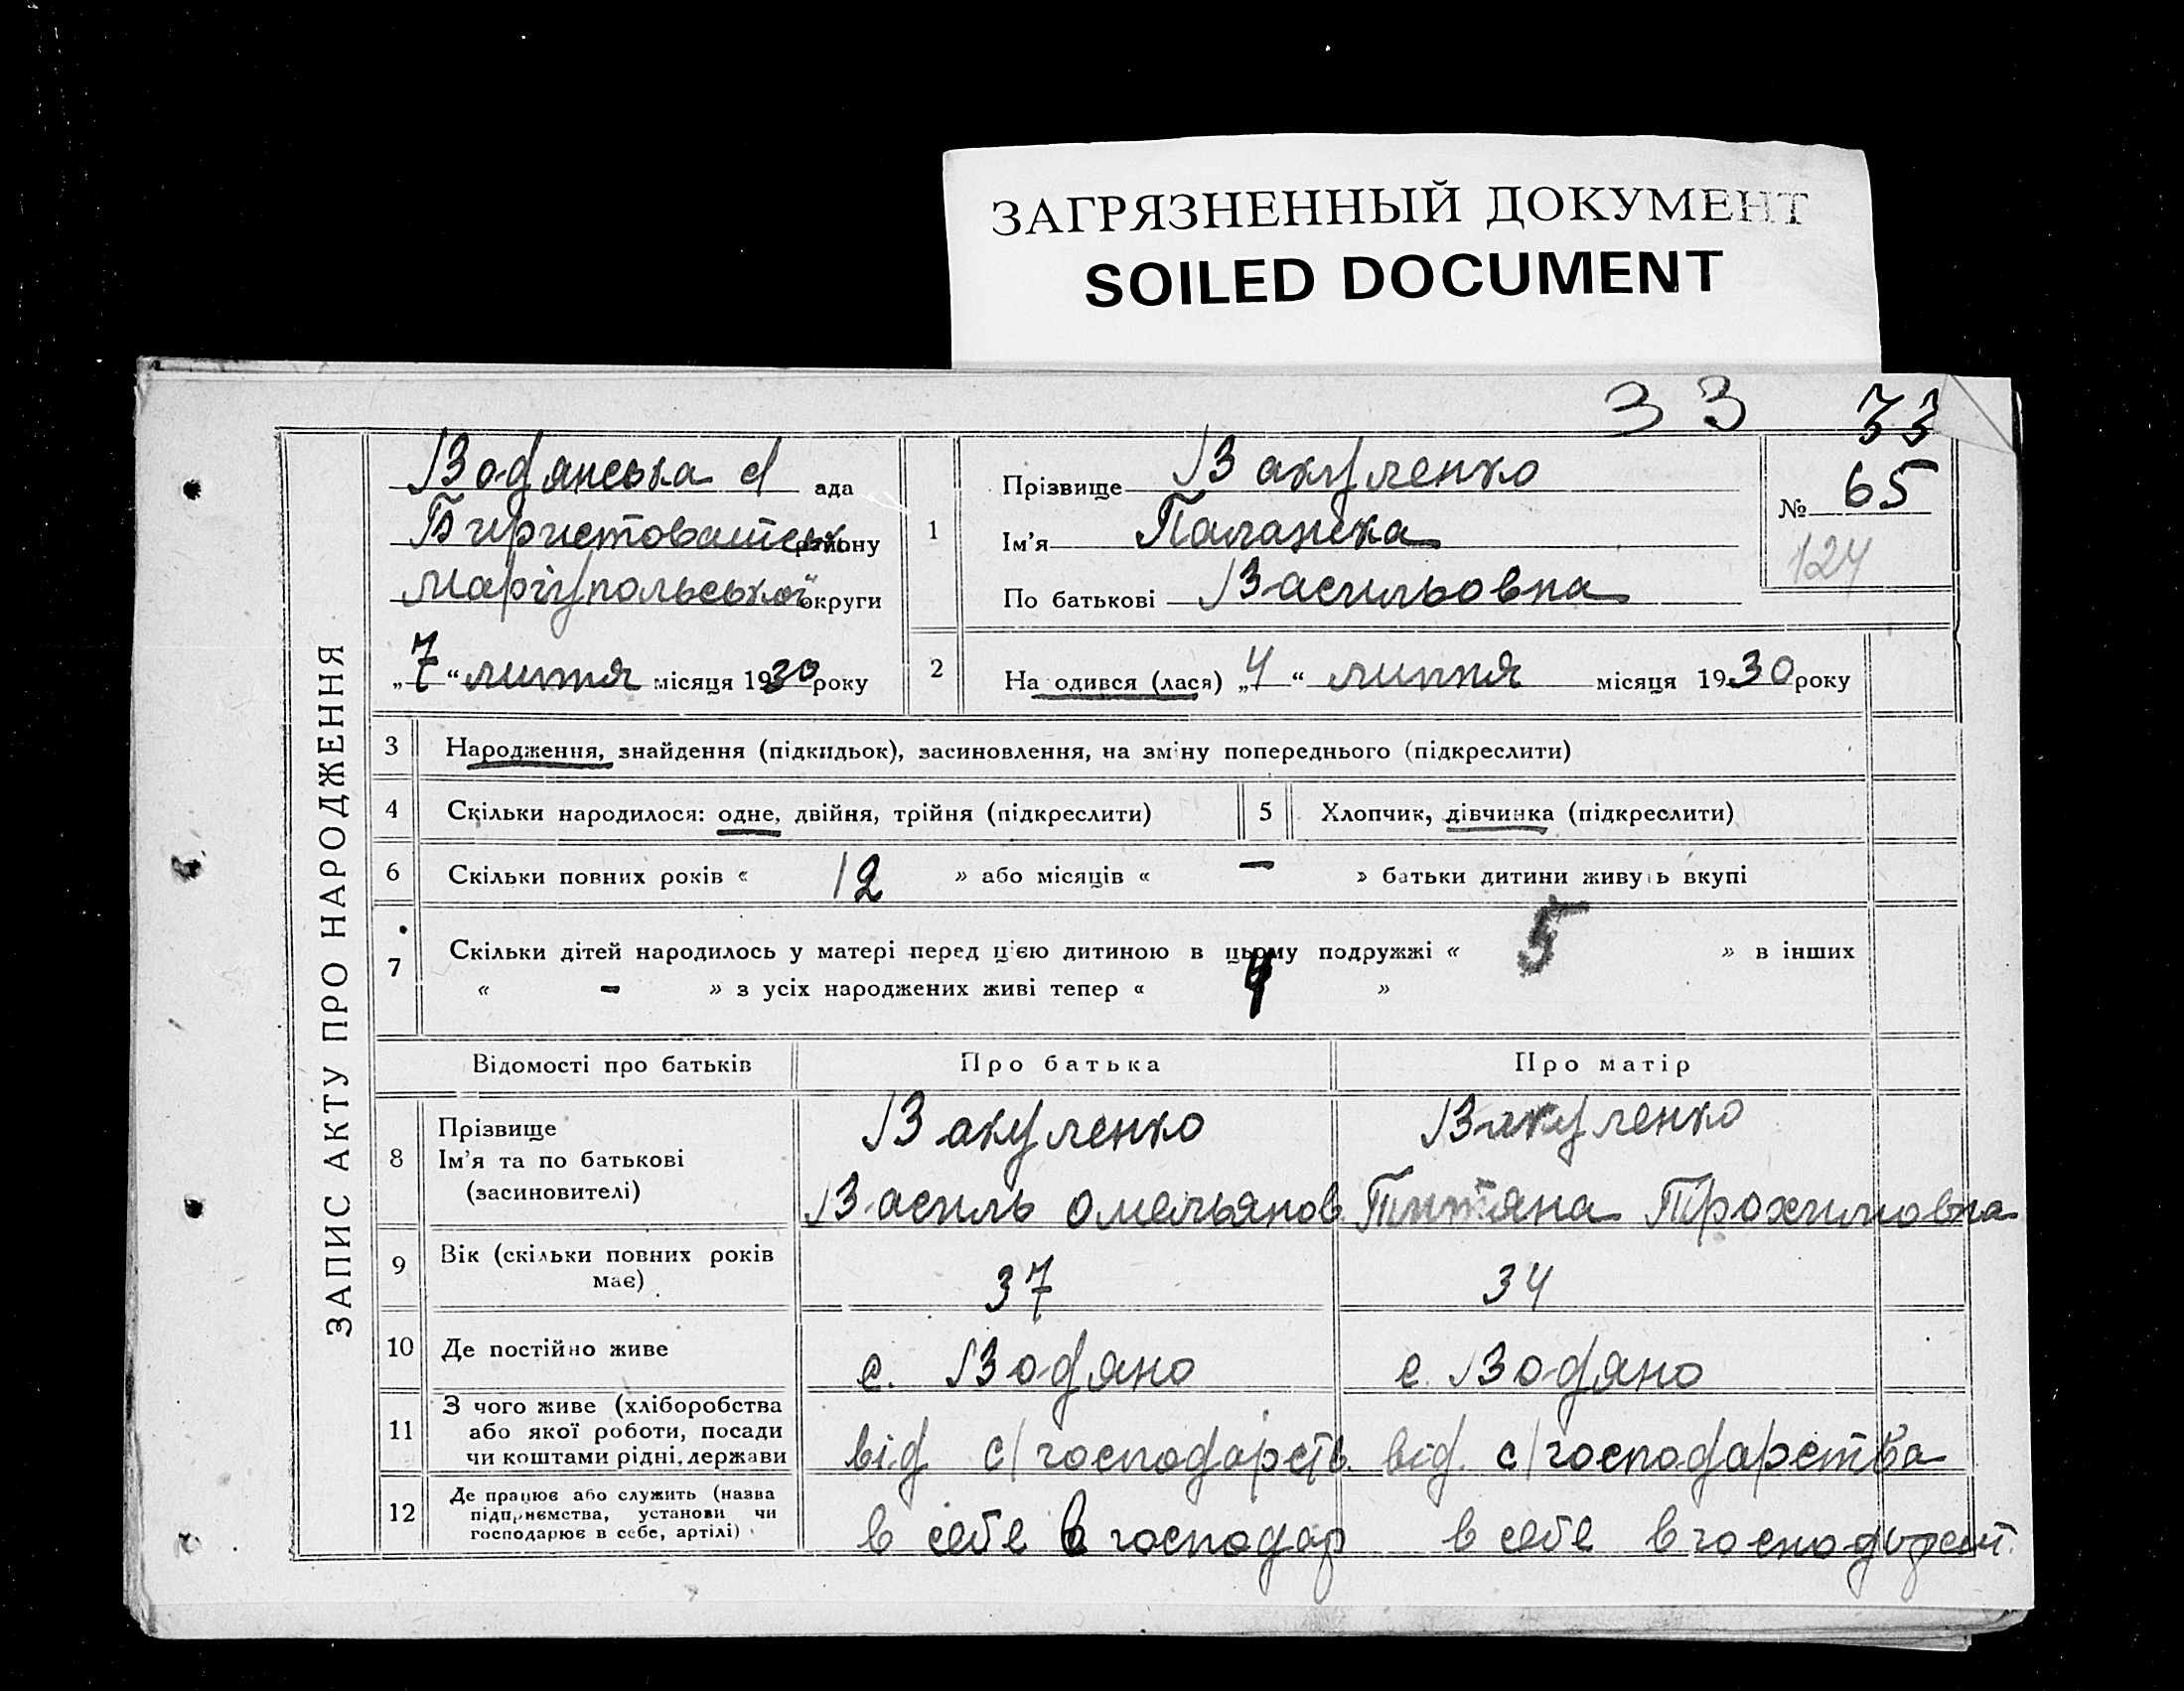 ЗАГРЯЗНЕННЫЙ ДОКУМЕНТ
SOILED DOCUMENT
33 33
ЗАПИС АКТУ ПРО НАРОДЖЕННЯ
Водянська с/ ада
району
Маріупольської округи
„7“ липня місяця 1930 року
1
Прізвище Вакуленко
Ім'я Палажка
По батькові Васильовна
№ 65
124
2
На одився (лася) „4“ липня місяця 1930 року
3 Народження, знайдення (підкидьок), засиновлення, на зміну попереднього (підкреслити)
4 Скільки народилося: одне, двійня, трійня (підкреслити) 5 Хлопчик, дівчинка (підкреслити)
6 Скільки повних років « 12 » або місяців « — » батьки дитини живуть вкупі
7 Скільки дітей народилось у матері перед цією дитиною в цьому подружжі « 5 » в інших
« - » з усіх народжених живі тепер « 4 »
Відомості про батьків Про батька Про матір
8 Прізвище
Ім'я та по батькові
(засиновителі)
Вакуленко
Василь Омельянов
Вакуленко
Титяна Трохимовна
9 Вік (скільки повних років
має)
37 34
10 Де постійно живе с. Водяно с. Водяно
11 З чого живе (хліборобства
або якої роботи, посади
чи коштами рідні, держави
від с/господарств. від с/господарства
12 Де працює або служить (назва
підприємства, установи чи
господарює в себе, артілі)
в себе в господар в себе в господарст.